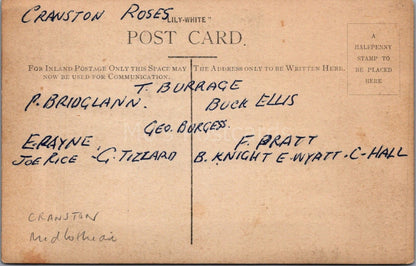 CRANSTON ROSES
"LILY-WHITE"
POST CARD.
A
HALFPENNY
STAMP TO
BE PLACED
HERE
FOR INLAND POSTAGE ONLY THIS SPACE MAY
NOW BE USED FOR COMMUNICATION.
THE ADDRESS ONLY TO BE WRITTEN HERE.
T. BURRAGE
P. BRIDGLANN. BUCK ELLIS
GEO. BURGESS.
E. RAYNE. F. PRATT
JOE RICE - G. TIZZARD B. KNIGHT E-WYATT - C-HALL
CRANSTON
Midlothian